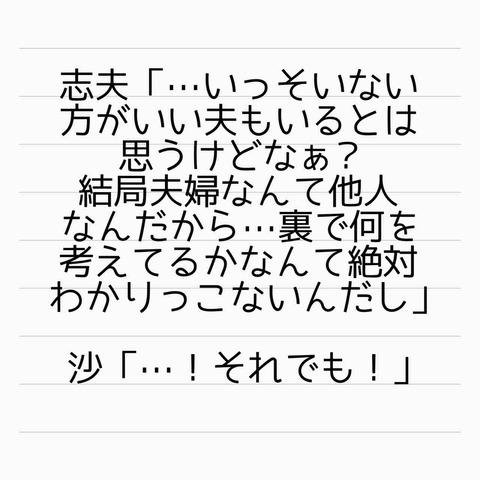 志夫「…いっそいない
方がいい夫もいるとは
思うけどなぁ?
結局夫婦なんて他人
なんだから…裏で何を
考えてるかなんて絶対
わかりっこないんだし」
沙「…!それでも!」